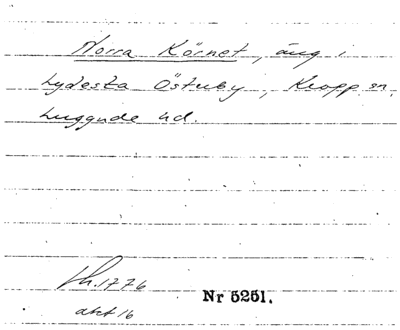 Norra Körnet, äng i
Lydesta Östruby, Kropp sn.
Luggude hd.
h.1776
akt 16
Nr 5251.